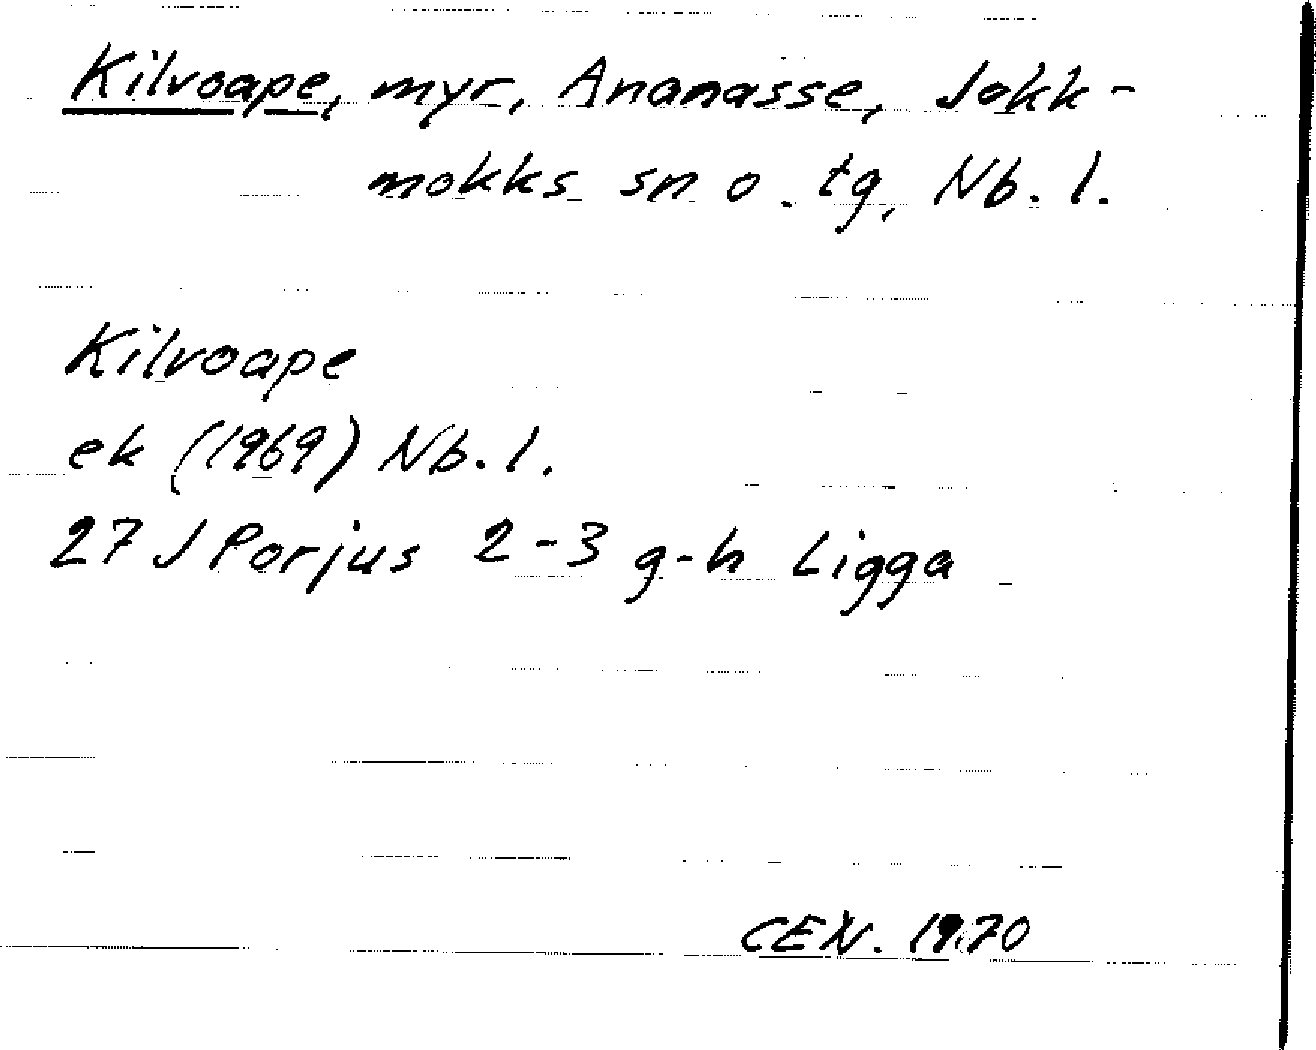 Kilvoape, myr, Ananasse, Jokk-
mokks sn o. tg, Nb. l.
Kilvoape
ek (1969) Nb. l.
27 J Porjus 2-3 g-h Ligga
CEN. 1970